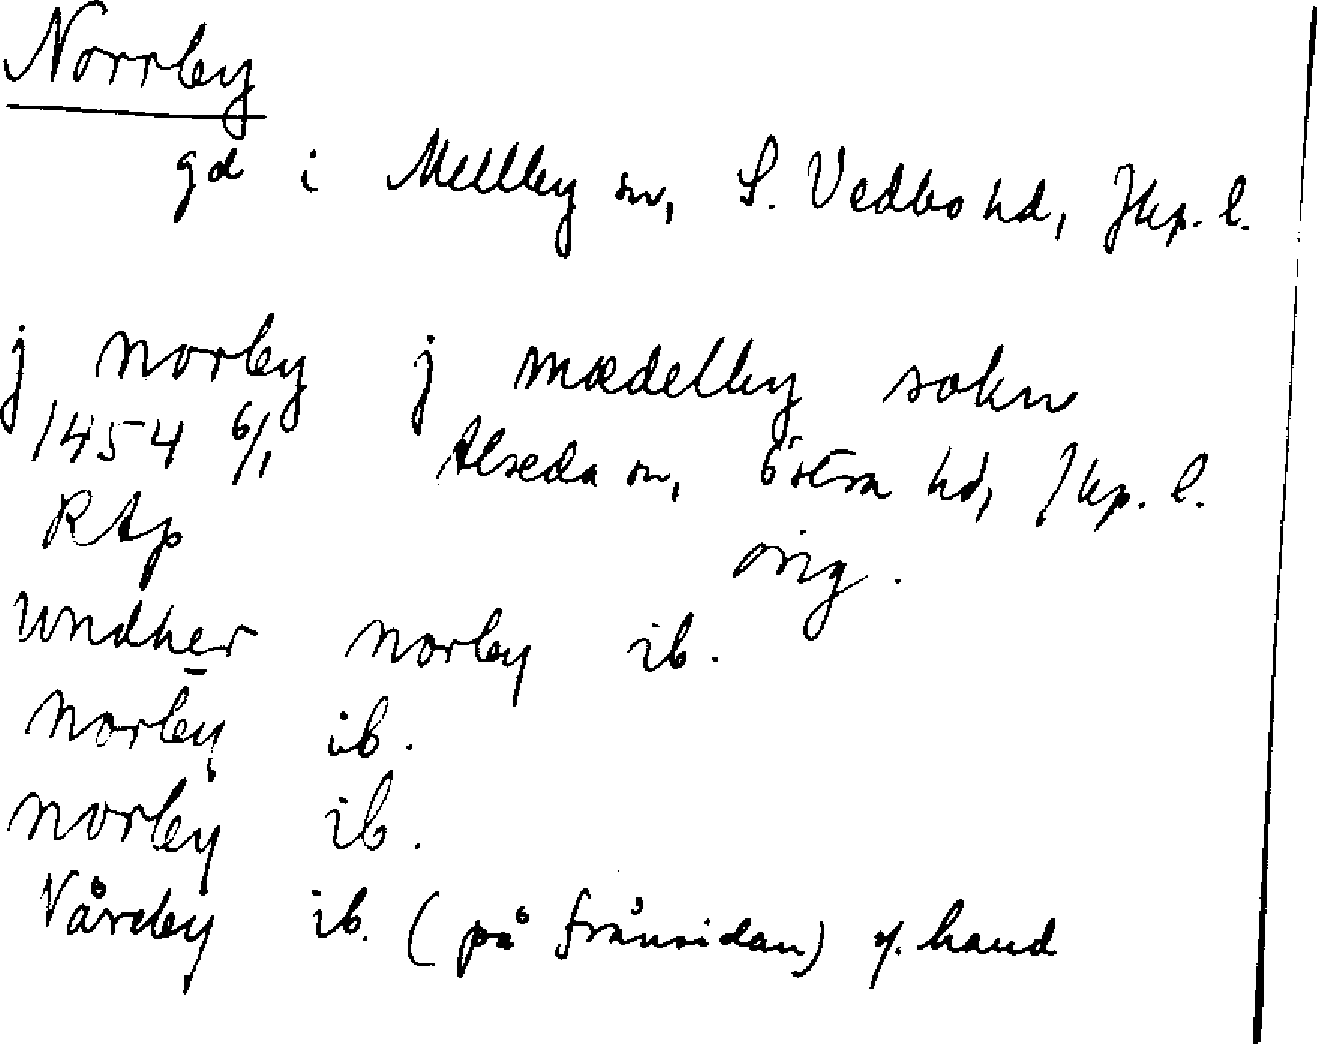 Norrby
gd i Mellby sn, S. Vedbo hd, Jkp. l.
j norby j mædelby sokn
1454 6/1 Alseda sn, Östra hd, Jkp. l.
RAp orig.
undher norby ib.
norby ib.
norby ib.
Vårby ib. (på frånsidan) y. hand